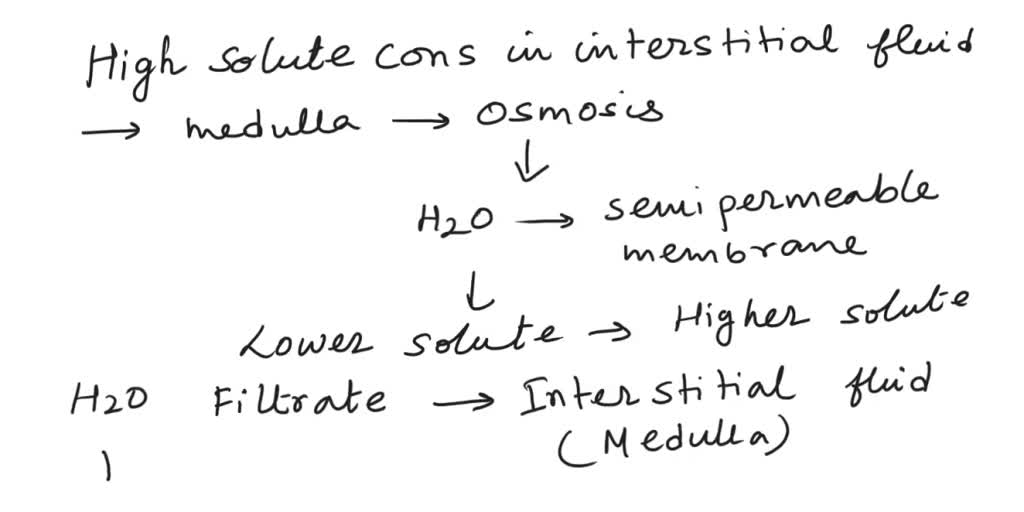 High solute cons in interstitial fluid
→ medulla → osmosis
↓
H2O → semipermeable
membrane
↓
Lower solute → Higher solute
H2O Filtrate → Interstitial fluid
(Medulla)